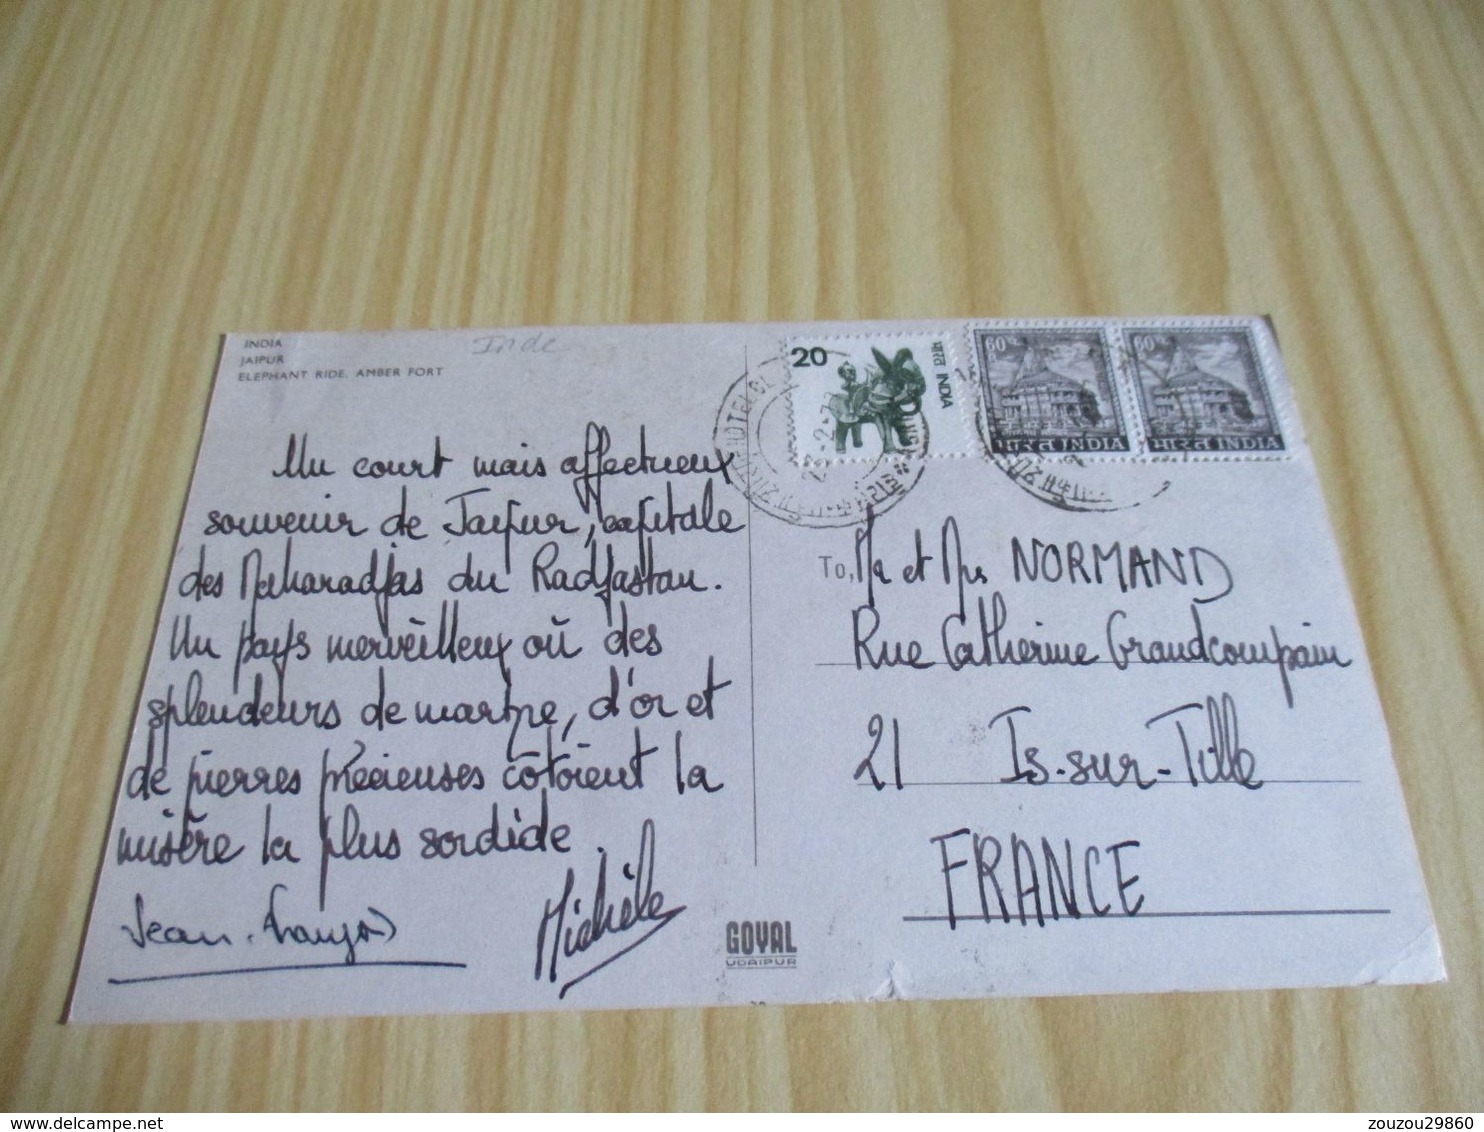 INDIA
JAIPUR
ELEPHANT RIDE. AMBER FORT
Inde
Un court mais affectueux
souvenir de Jaipur, capitale
des Maharadjas du Radjastan.
Un pays merveilleux où des
splendeurs de marbre, d'or et
de pierres précieuses côtoient la
misère la plus sordide.
Jean-François
Michèle
20
भारत INDIA
60
भारत INDIA
60
भारत INDIA
To, Mr et Mme NORMAND
Rue Catherine Grandcompain
21 Is-sur-Tille
FRANCE
GOYAL
UDAIPUR
delcampe.net
zouzou29860